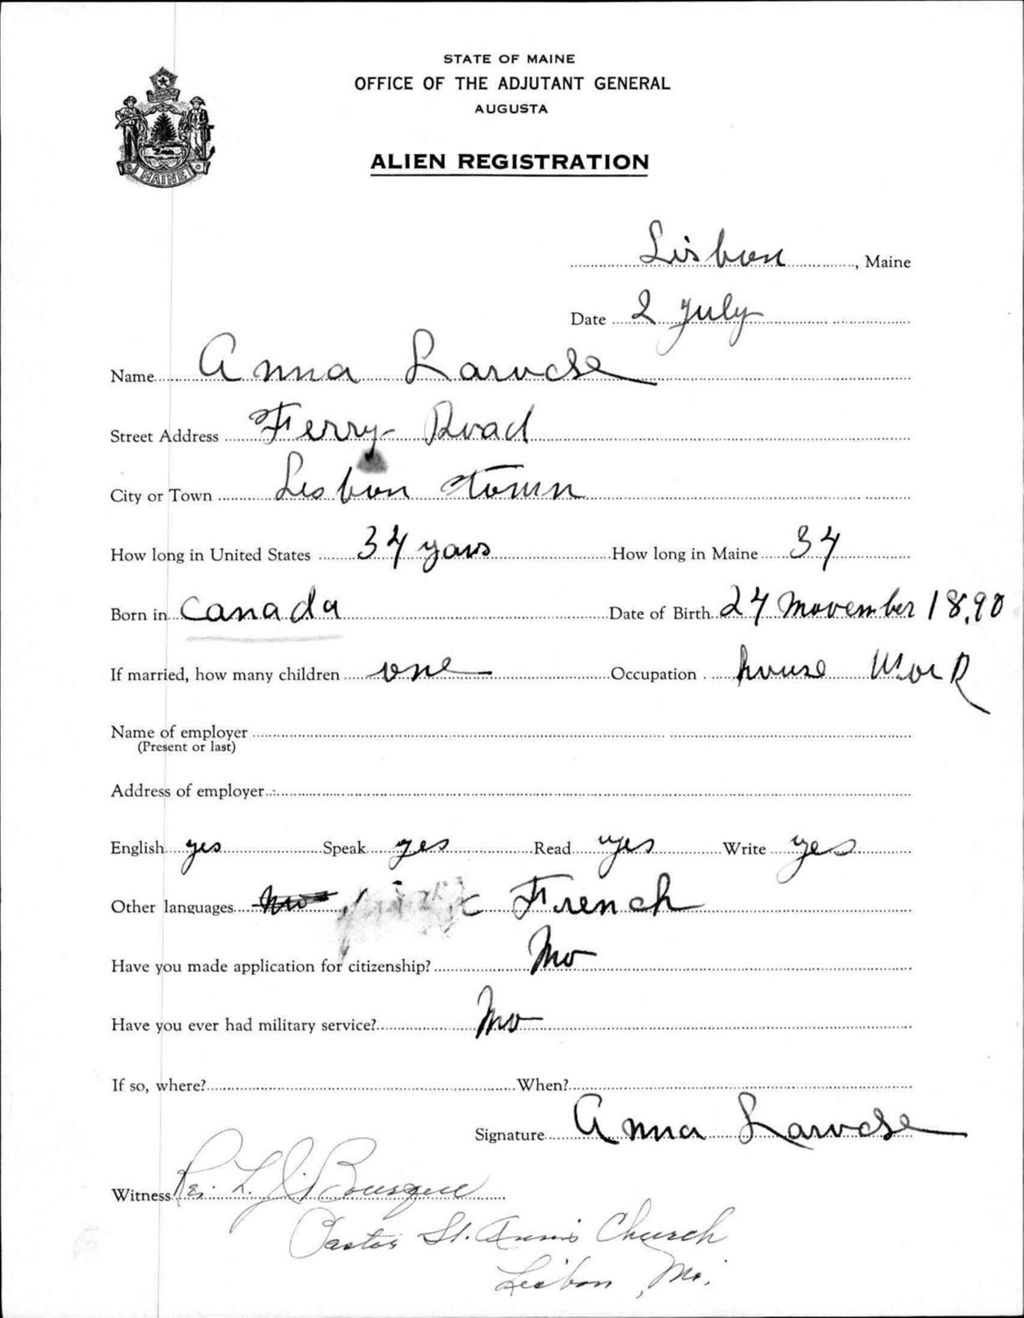 STATE OF MAINE
OFFICE OF THE ADJUTANT GENERAL
AUGUSTA
ALIEN REGISTRATION
MAINE
Lisbon, Maine
Date 2 July
Name Anna Larocse
Street Address Ferry Road
City or Town Lisbon town
How long in United States 34 years How long in Maine 34
Born in Canada Date of Birth 24 November 1890
If married, how many children one Occupation house Work
Name of employer
(Present or last)
Address of employer
English yes Speak yes Read yes Write yes
Other languages French
Have you made application for citizenship? No
Have you ever had military service? No
If so, where? When?
Signature Anna Larocse
Witness Rev. L. J. Bourque
Pastor St. Ann's Church
Lisbon, Me.